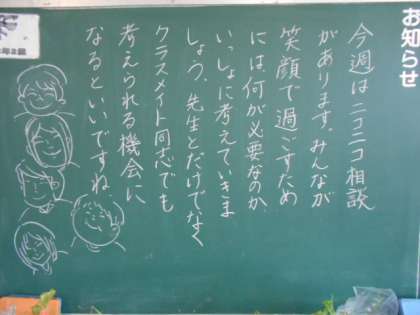 お知らせ
今週はニコニコ相談
があります。みんなが
笑顔で過ごすため
には何が必要なのか、
いっしょに考えていきま
しょう。先生とだけでなく
クラスメイト同志でも
考えられる機会に
なるといいですね。